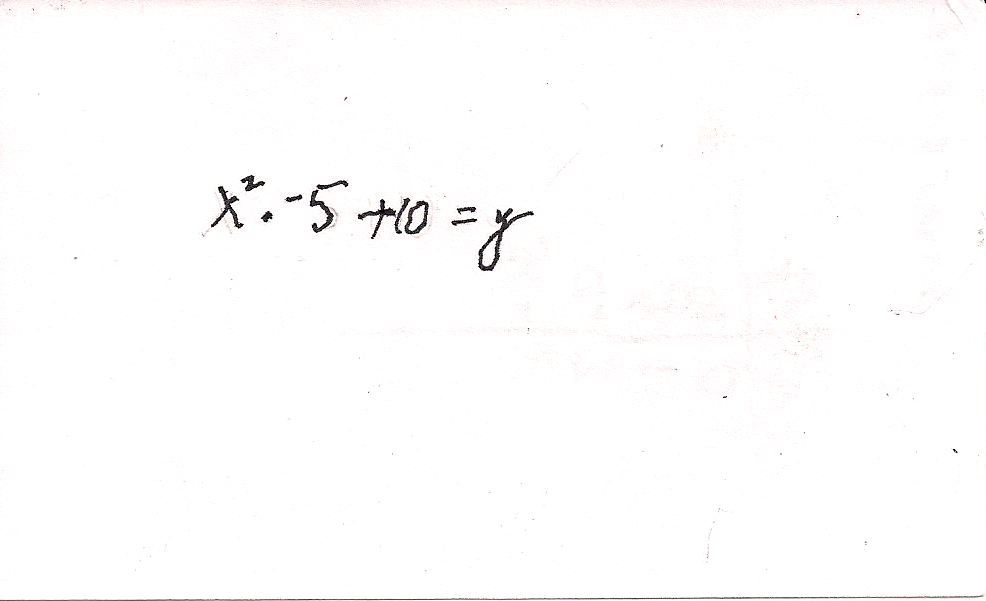 x². -5 +10 = y